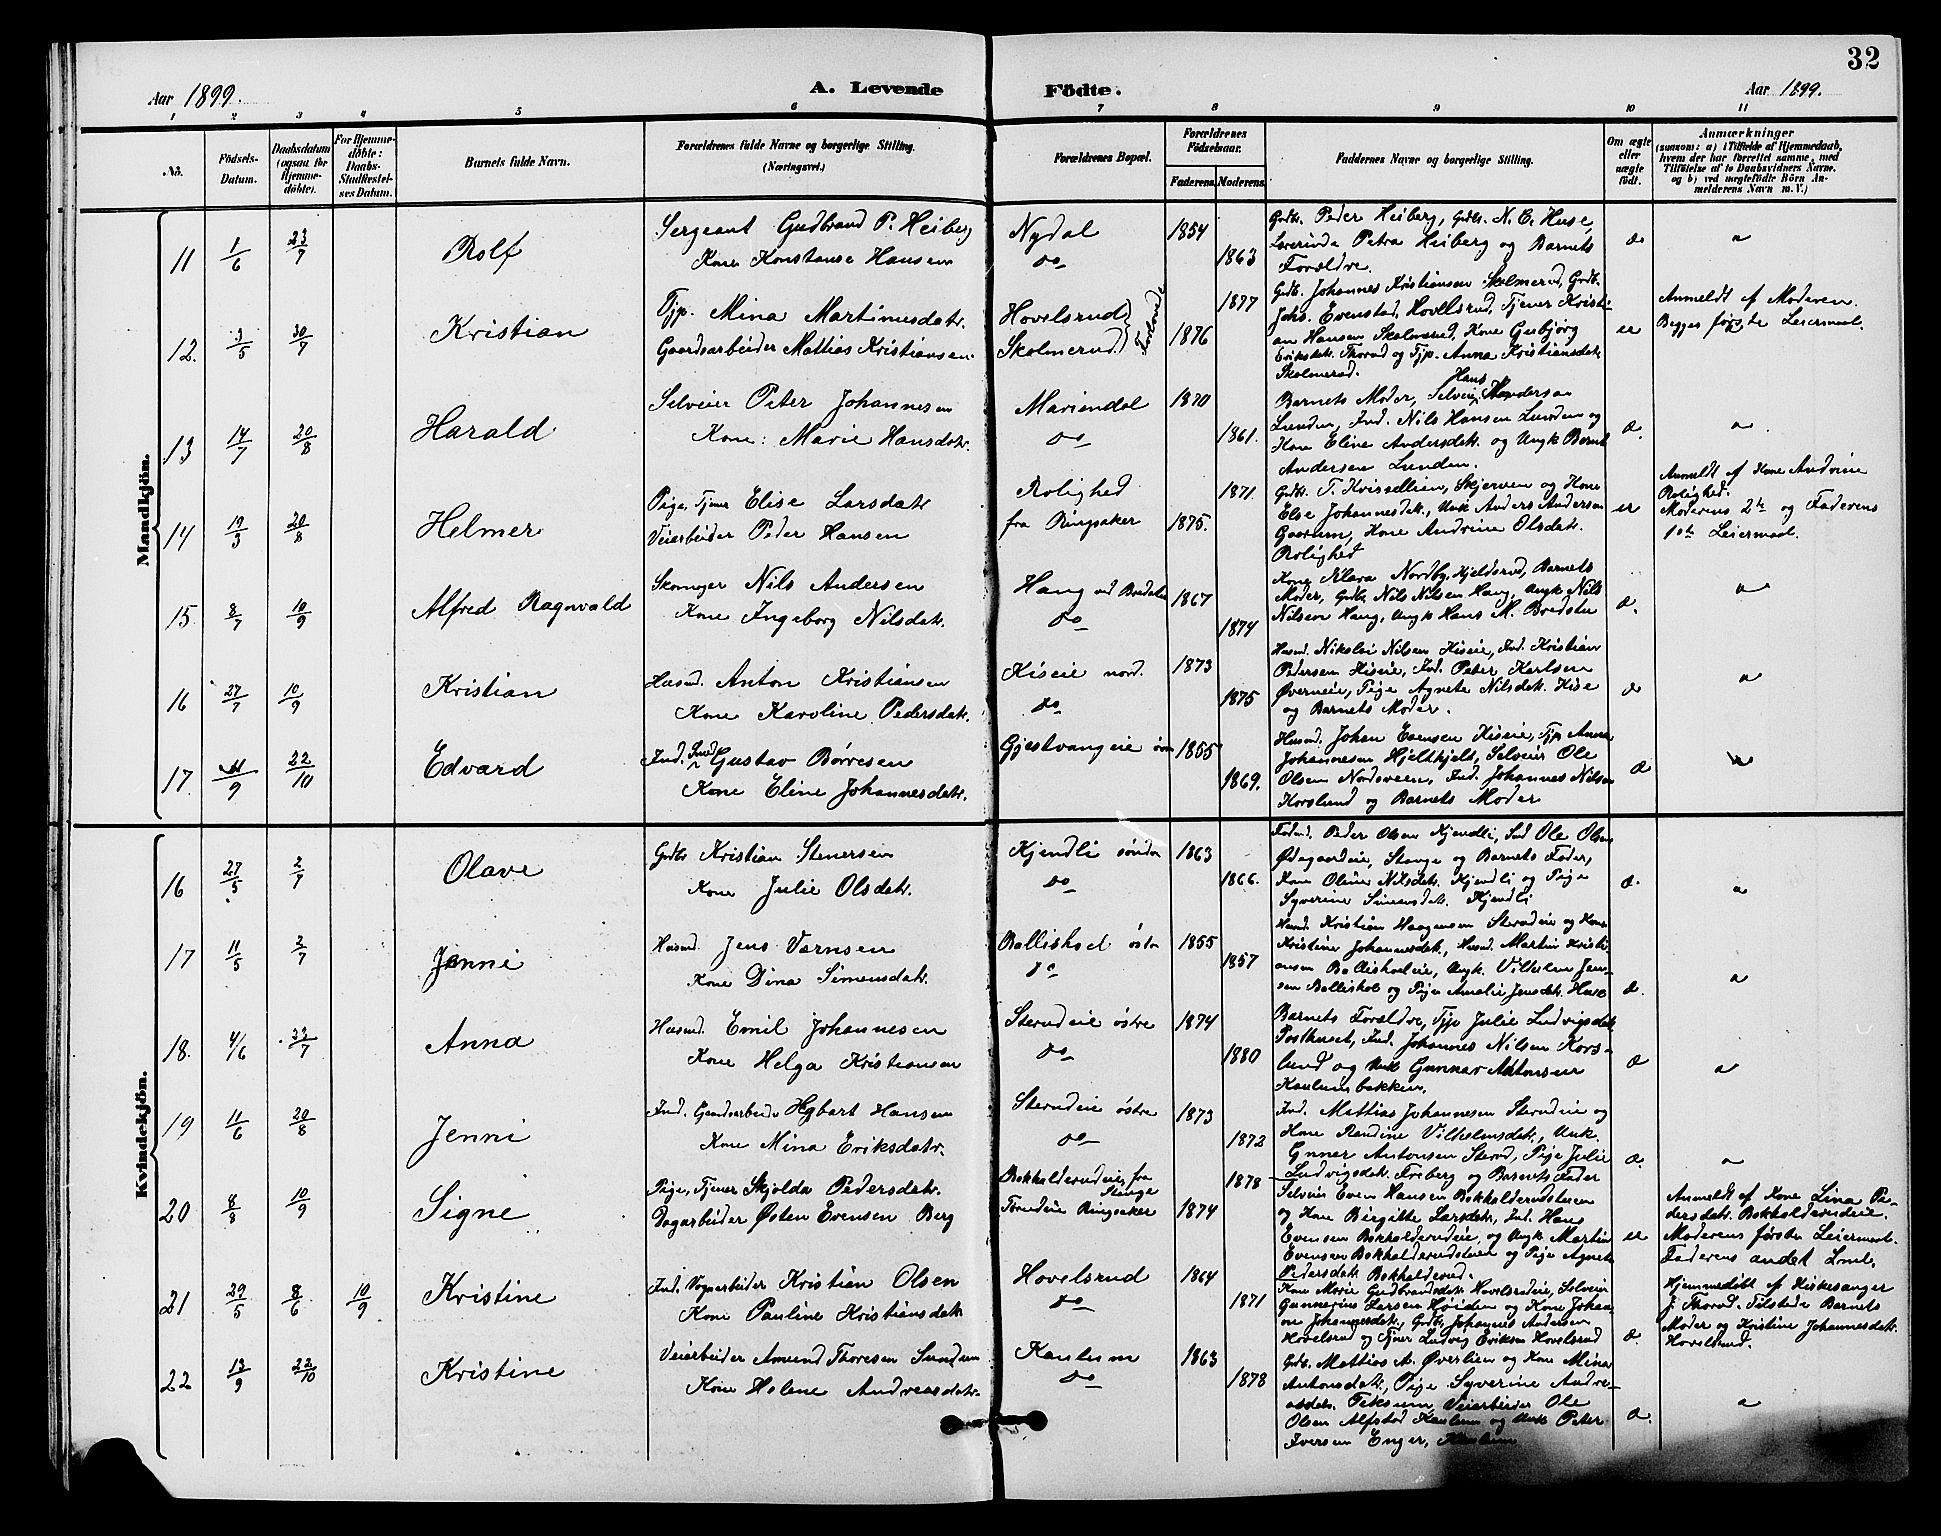 32
Aar 1899.
A. Levende
Födte.
Aar 1899.
1 2 3 4 5 6 7 8 9 10 11
No.
Födsels-Datum.
Daabsdatum (ogsaa for Hjemme-döbte).
For Hjemme-döbte: Daabs-Stadfæstel-ses Datum.
Barnets fulde Navn.
Forældrenes fulde Navne og borgerlige Stilling.
(Næringsvei.)
Forældrenes Bopæl.
Forældrenes Födselsaar.
Faderens.
Moderens.
Faddernes Navne og borgerlige Stilling.
Om ægte eller uægte födt.
Anmærkninger
(saasom: a) i Tilfælde af Hjemmedaab,
hvem der har forrettet samme, med
Tilföielse af to Daabsvidners Navne,
og b) ved uægtefödte Börn An-
melderens Navn m. V.)
Mandkjön.
11 1/6 23/7 Rolf
Sergeant Gudbrand P. Heiberg
Kone Konstanse Hansen
Nydal
do
1854
1863
Gdb. Peder Heiberg, Gdb. N. C. Huse,
Lærerinde Petra Heiberg og Barnets
Forældre.
æ
"
12. 3/5 30/7 Kristian
Tjp. Mina Martinusdatr.
Gaardsarbeider Mattias Kristiansen.
Hovelsrud
Skolmerud
Forlovede
1877
1876
Gdb. Johannes Kristiansen Skolmerud, Gdb.
Johs. Evenstad, Hovelsrud, Tjener Kristi-
an Hansen Skolmerud, Kone Gubjørg
Eriksdatr. Thorud og Tjp. Anna Kristiansdatr.
Skolmerud.
u
Anmeldt af Moderen.
Begges første Leiermaal.
13 14/7 20/8 Harald
Selveier Peter Johannesen
Kone: Marie Hansdatr.
Mariendal
do
1870
1861.
Barnets Moder, Selveier Hans Andersen
Lunden, Ind. Nils Hansen Lunden og
Kone Eline Andersdatr. og Ungk Bernt
Andersen Lunden.
æ.
"
14 19/3 20/8 Helmer
Pige, Tjener Elise Larsdatr
Veiarbeider Peder Hansen
Rolighed
fra Ringsaker
1871
1875.
Gdb. T. Kvissellien, Skjerven og Kone
Else Johannesdatr., Unk Anders Andersen
Gaarum, Kone Andrine Olsdatr.
Rolighed
u
Anmeldt af Kone Andrine
Rolighed.
Moderens 2te og Faderens
1ste Leiermaal.
15. 8/7 10/9 Alfred Ragnvald
Skomager Nils Andersen
Kone Ingeborg Nilsdatr.
Haug ved Bredsten
do
1867
1874
Kone Klara Nordby, Kjelderud, Barnets
Moder, Gdb. Nils Nilsen Haug, Ungk Nils
Nilsen Haug, Ungk Hans M. Bredsten
æ.
"
16 27/7 10/9 Kristian
Husmd. Anton Kristiansen
Kone Karoline Pedersdatr.
Kiseie nord.
do
1873
1875
Husmd. Nikolai Nilsen Kiseie, Ind. Kristian
Pedersen Kiseie, Ind. Peter Karlsen
Øverneie, Pige Agnete Nilsdatr. Kise
og Barnets Moder.
æ
"
17. 11/9 22/10 Edvard
Ind. Smed Gustav Børresen
Kone Eline Johannesdatr.
Gjestvangeie øvre
1855
1869.
Husmd. Johan Evensen Kiseie, Tjp Anna
Johannesen Hjeltkjelt, Selveier Ole
Olsen Nordsveen, Ind. Johannes Nilsen
Korslund og Barnets Moder
æ
"
Kvindekjön.
16 27/5 2/7 Olave
Gdb. Kristian Stenersen
Kone Julie Olsdatr.
Kjendli søndre
do
1863
1866.
Fodmd. Peder Olsen Kjendli, Ind Ole Olsen
Ødegaardeie, Stange og Barnets Fader,
Kone Oline Nilsdatr. Kjendli og Pige
Syverine Simensdatr. Kjendli
æ.
"
17 11/5 2/7 Jenni
Husmd. Jens Vernsen
Kone Dina Simensdatr.
Ballishoel østre
do
1855
1857
Husmd. Kristian Haagensen Sterudeie og Kone
Kristine Johannesdatr., Husmd. Martin Kristi-
ansen Ballishoeleie, Ungk. Vilhelm Jen-
sen Ballishol og Pige Amalie Jensdatr. Huse
æ.
"
18. 4/6 23/7 Anna
Husmd. Emil Johannesen
Kone Helga Kristiansen
Sterudeie østre
do
1874
1880
Barnets Forældre, Tjp Julie Ludvigsdatr
Posthuset, Ind. Johannes Nilsen Kors-
lund og Unk Gunnar Antonsen
Kaulumbakken.
æ
"
19 11/6 20/8 Jenni
Ind. Gaardsarbeider Hgbart Hansen
Kone Mina Eriksdatr.
Sterudeie østre
do
1873
1872
Ind. Mattias Johannesen Sterudeie og
Kone Randine Vilhelmsdatr., Unk.
Gunner Antonsen Sterud, Pige Julie
Ludvigsdatr. Friberg og Barnets Fader
æ.
"
20 8/8 10/9 Signe
Pige, Tjener Skjolda Pedersdatr.
Dagarbeider Østen Evensen Berg
Bokholderudeie, fra
Stange
Tørudeie Ringsaker
1878
1874
Selveier Even Hansen Bokholderudstuen
og Kone Birgitte Larsdatr., Ind. Hans
Evensen Bokholderudeie, og Ungk Martin
Evensen Bokholderudstuen og Pige Agnete
Pedersdatr. Bokholderud.
u
Anmeldt af Kone Lina Pe-
dersdatr. Bokholderudeie.
Moderens første Leiermaal.
Faderens andet Lml.
21 29/5 8/6 10/9 Kristine
Ind. Vognarbeider Kristian Olsen
Kone Pauline Kristiansdatr.
Hovelsrud
do
1864
1871
Kone Marie Gudbrandsdatr. Hovelsrudeie, Selveier
Gunnerius Larsen Høiden og Kone Johan-
ne Johannesdatr., Gdb. Johannes Andersen
Hovelsrud og Tjener Ludvig Eriksen Hovelsrud
æ
Hjemmedøbt af Kirkesanger
J. Thorud. Tilstede Barnets
Moder og Kristine Johannesdatr.
Hovelsrud.
22 13/9 22/10 Kristine
Veiarbeider Amund Thoresen Sundum
Kone Helene Andreasdatr.
Kaulum
do
1863
1878
Gdb. Mattias A. Øverlien og Kone Mina
Antonsdatr., Pige Syverine Andre-
asdatr. Teksum, Veiarbeider Ole
Olsen Alfstad Kaulum og Unk Peter
Iversen Enger, Kaulum
æ.
"